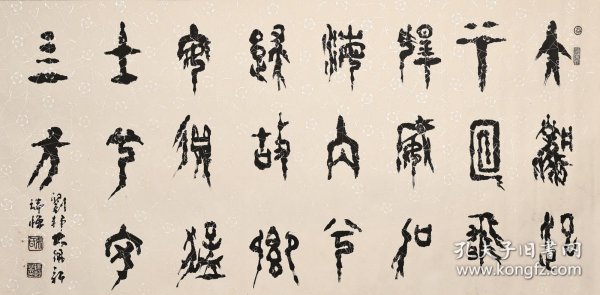 大風起
兮雲飛
揚威加
海内兮
歸故鄉
安得猛
士兮守
四方
劉邦大風歌
孔夫子旧书网
www.kongfz.com